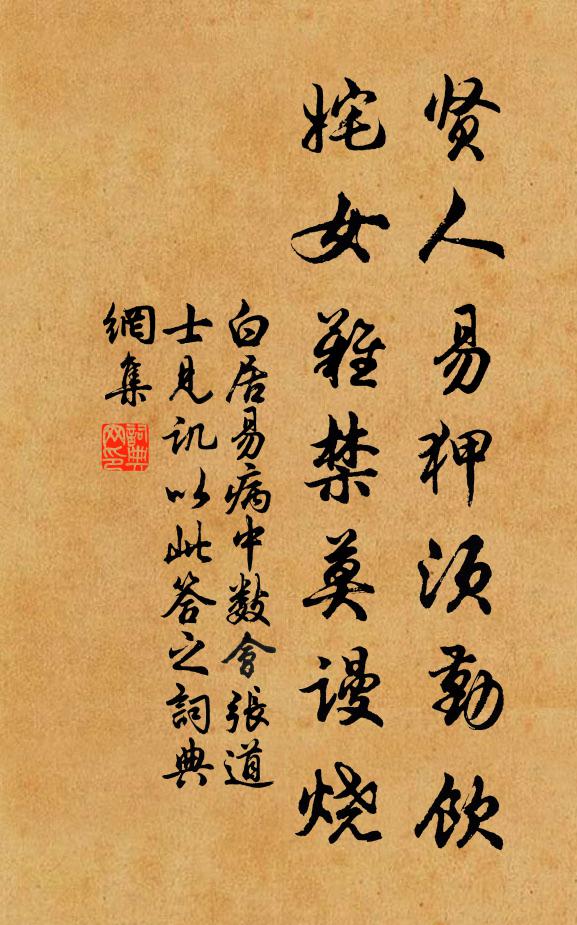 贤人易狎须勤饮
姹女难禁莫谩烧
白居易病中数会張道
士見讥以此答之詞典
網集
詞典
网印